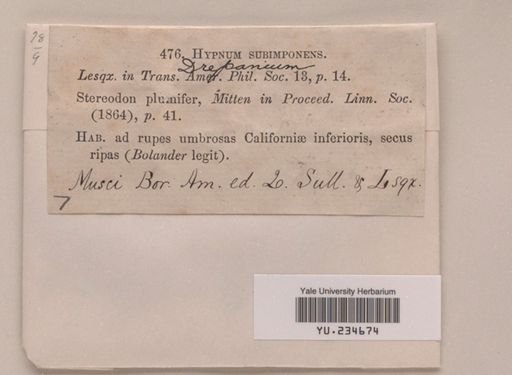 78
9
476. Hypnum subimponens.
Drepanium
Lesqx. in Trans. Amer. Phil. Soc. 13, p. 14.
Stereodon plumifer, Mitten in Proceed. Linn. Soc.
(1864), p. 41.
Hab. ad rupes umbrosas Californiæ inferioris, secus
ripas (Bolander legit).
Musci Bor. Am. ed. 2. Sull. & Lsqx.
7
Yale University Herbarium
YU.234674